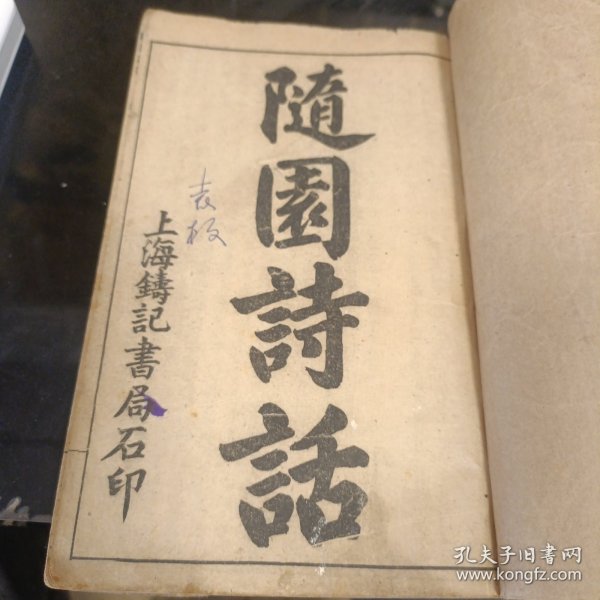 隨園詩話
袁枚
上海鑄記書局石印
孔夫子旧书网
www.kongfz.com